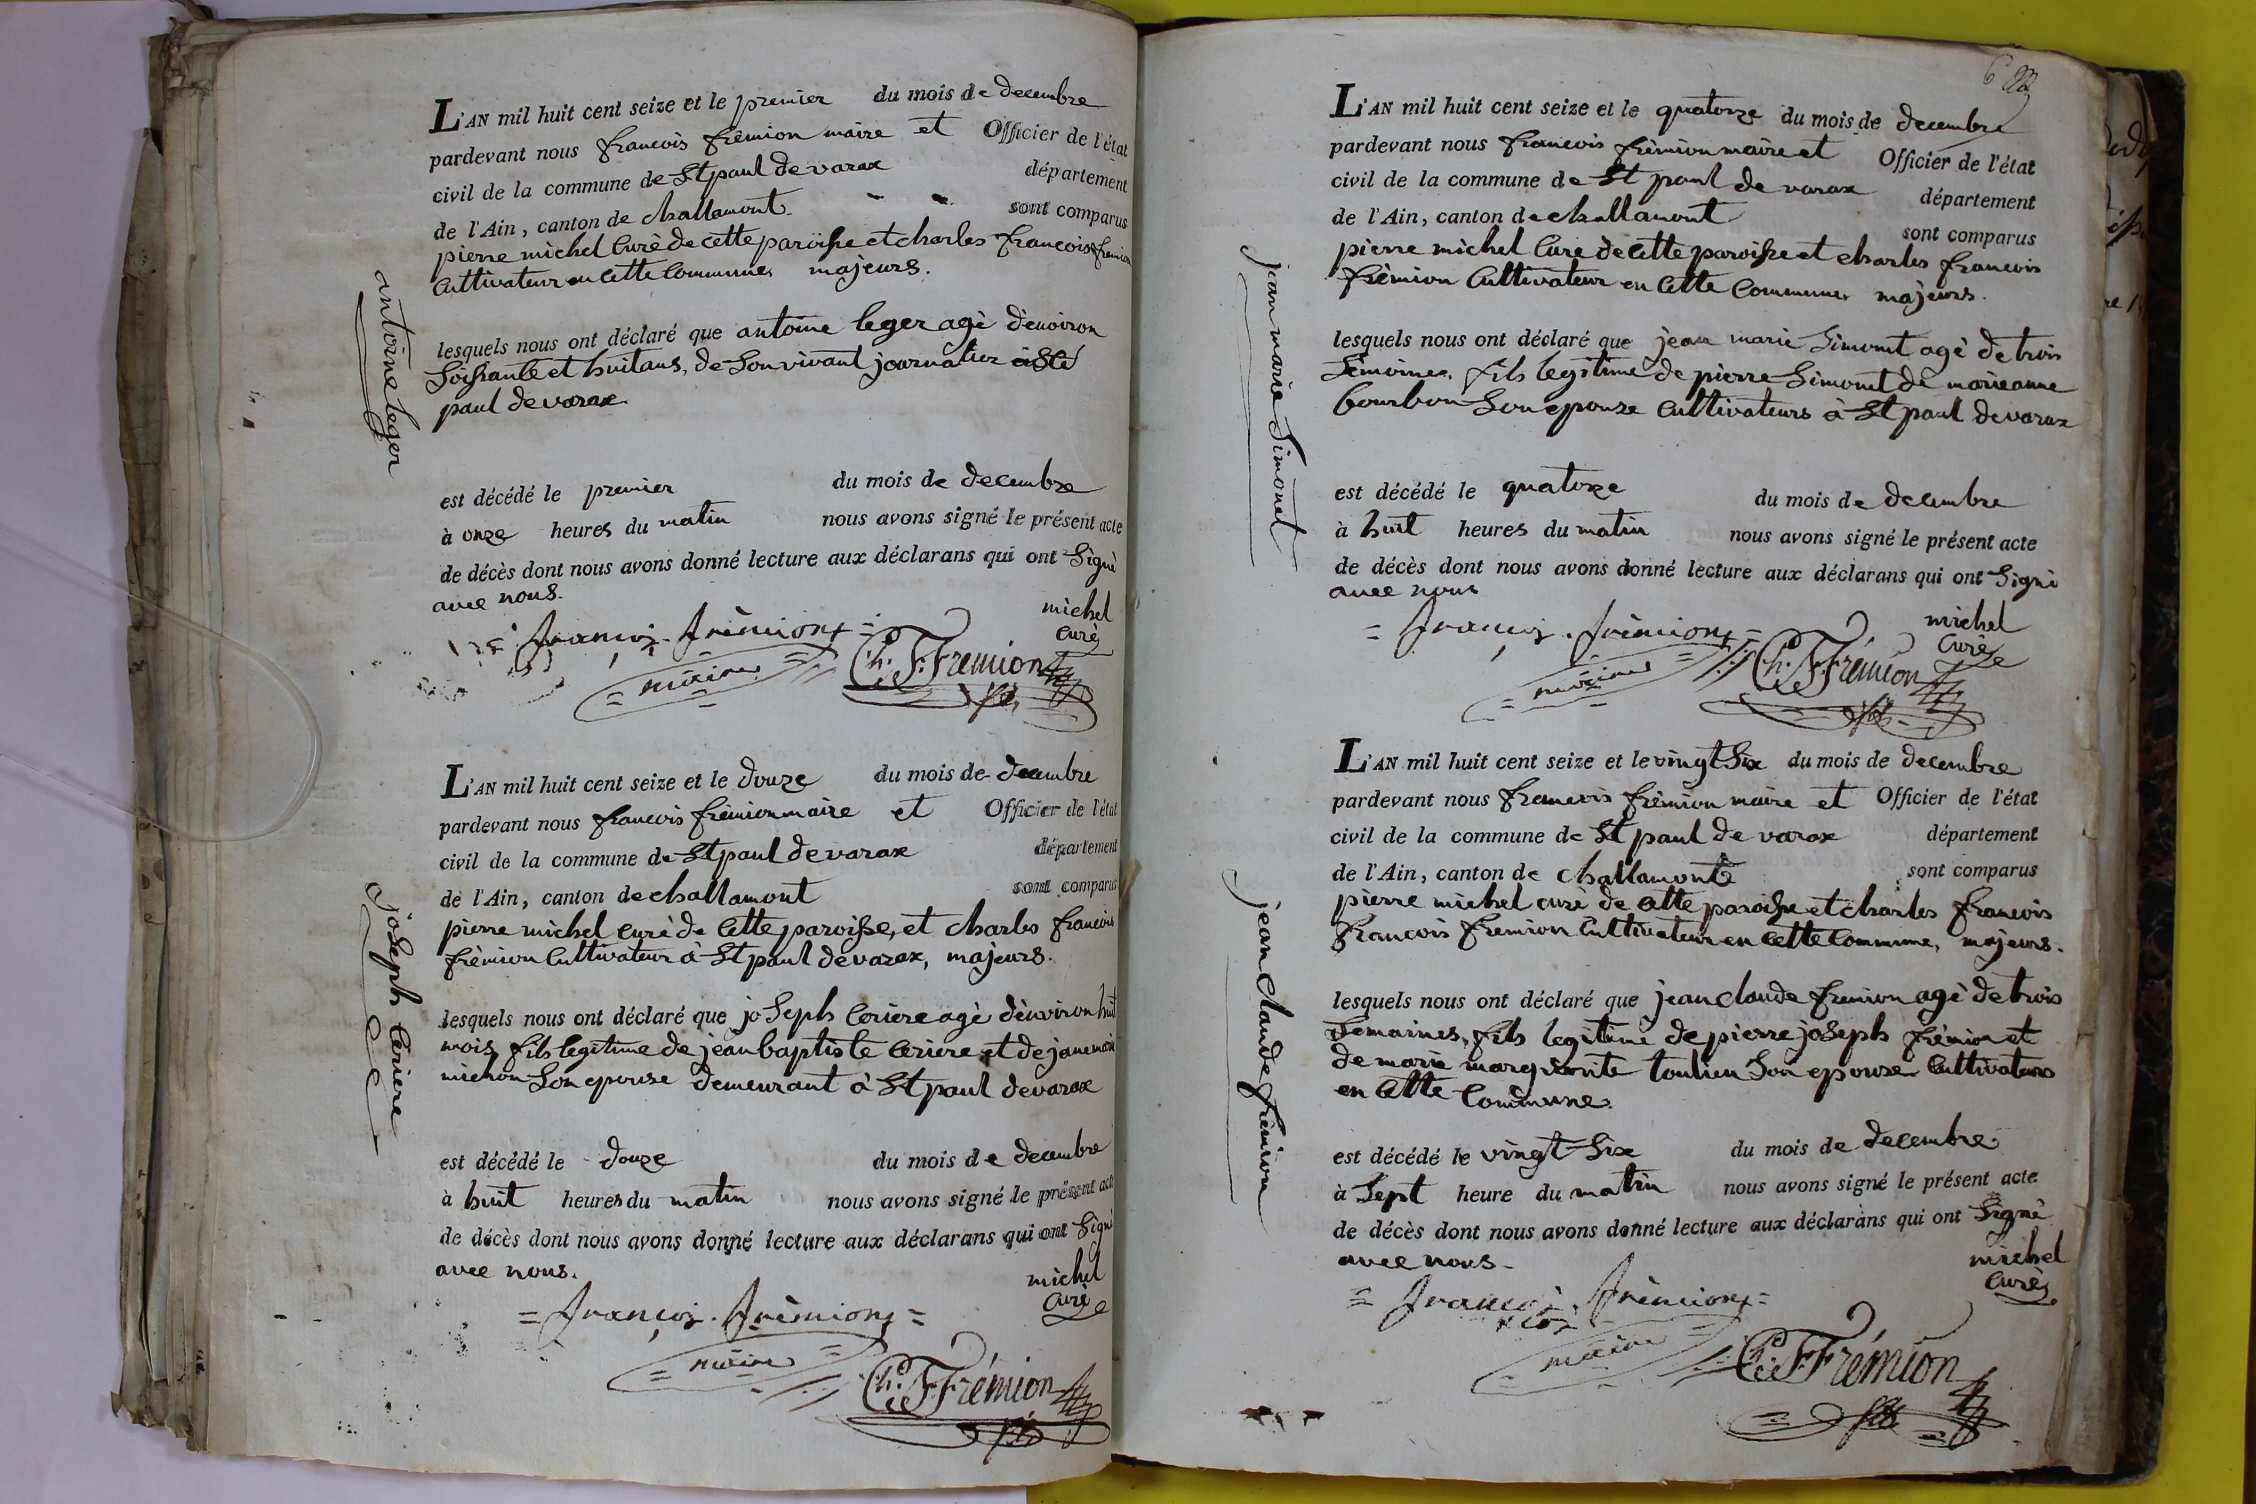 antoine leger
L'AN mil huit cent seize et le premier du mois de decembre
pardevant nous francois frèmion maire et Officier de l'état
civil de la commune de St paul de varax département
de l'Ain, canton de challamont sont comparus
pierre michel Curè de cette paroisse et charles francois fremion
Cultivateur en cette Commune, majeurs.
lesquels nous ont déclaré que antoine leger agè d'environ
Soissante et huit ans, de Son vivant journalier à St
paul de varax
est décédé le premier du mois de decembre
à onze heures du matin nous avons signé le présent acte
de décès dont nous avons donné lecture aux déclarans qui ont Signè
avec nous.
michel
Curè
= françois. frèmion =
maire
Ch. F. Frémion
joseph Ceriere
L'AN mil huit cent seize et le douze du mois de decembre
pardevant nous francois frèmion maire et Officier de l'état
civil de la commune de St paul de varax département
de l'Ain, canton de challamont sont comparus
pierre michel curè de Cette paroisse, et charles francois
frèmion Cultivateur à St paul de varax, majeurs.
lesquels nous ont déclaré que joSeph Ceriere agè d'environ huit
mois, fils legitime de jean baptiste Ceriere et de jane marie
michon Son epouse demeurant à St paul de varax
est décédé le douze du mois de decembre
à huit heures du matin nous avons signé le présent acte
de décès dont nous avons donné lecture aux déclarans qui ont Signè
avec nous.
michel
Curè
= françois. frèmion =
maire
Ch. F. Frémion
6
jean marie Simonet
L'AN mil huit cent seize et le quatorze du mois de decembre
pardevant nous francois frèmion maire et Officier de l'état
civil de la commune de St paul de varax département
de l'Ain, canton de challamont sont comparus
pierre michel Curè de Cette paroisse et charles francois
frèmion Cultivateur en Cette Commune, majeurs.
lesquels nous ont déclaré que jean marie Simonet agè de trois
Semaines, fils legitime de pierre Simonet de marieanne
bourbon Son epouze Cultivateurs à St paul de varax
est décédé le quatorze du mois de decembre
à huit heures du matin nous avons signé le présent acte
de décès dont nous avons donné lecture aux déclarans qui ont Signè
avec nous
michel
Curè
= françois. frèmion =
maire
Ch. F. Frémion
jean Claude fremion
L'AN mil huit cent seize et le vingt Six du mois de decembre
pardevant nous francois frèmion maire et Officier de l'état
civil de la commune de St paul de varax département
de l'Ain, canton de challamont sont comparus
pierre michel curè de Cette paroisse et charles francois
francois fremion Cultivateur en Cette Commune, majeurs.
lesquels nous ont déclaré que jean claude fremion agè de trois
Semaines, fils legitime de pierre joSeph frèmion et
de marie marguerite Son epouse Cultivateurs
en Cette Commune.
est décédé le vingt Six du mois de decembre
à Sept heure du matin nous avons signé le présent acte
de décès dont nous avons donné lecture aux déclarans qui ont Signè
avec nous.
michel
Curè
= françois. frèmion =
maire
Ch. F. Frémion